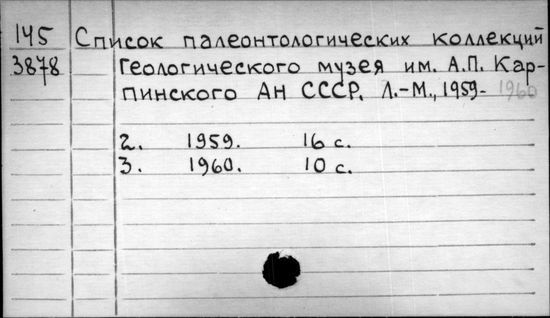 145 Список палеонтологических коллекций
3878 Геологического музея им. А.П. Кар-
пинского АН СССР. Л.-М., 1959- 1960
2. 1959. 16 с.
3. 1960. 10 с.